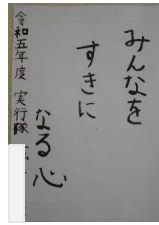 みんなを
すきに
なる心
令和五年度 実行隊